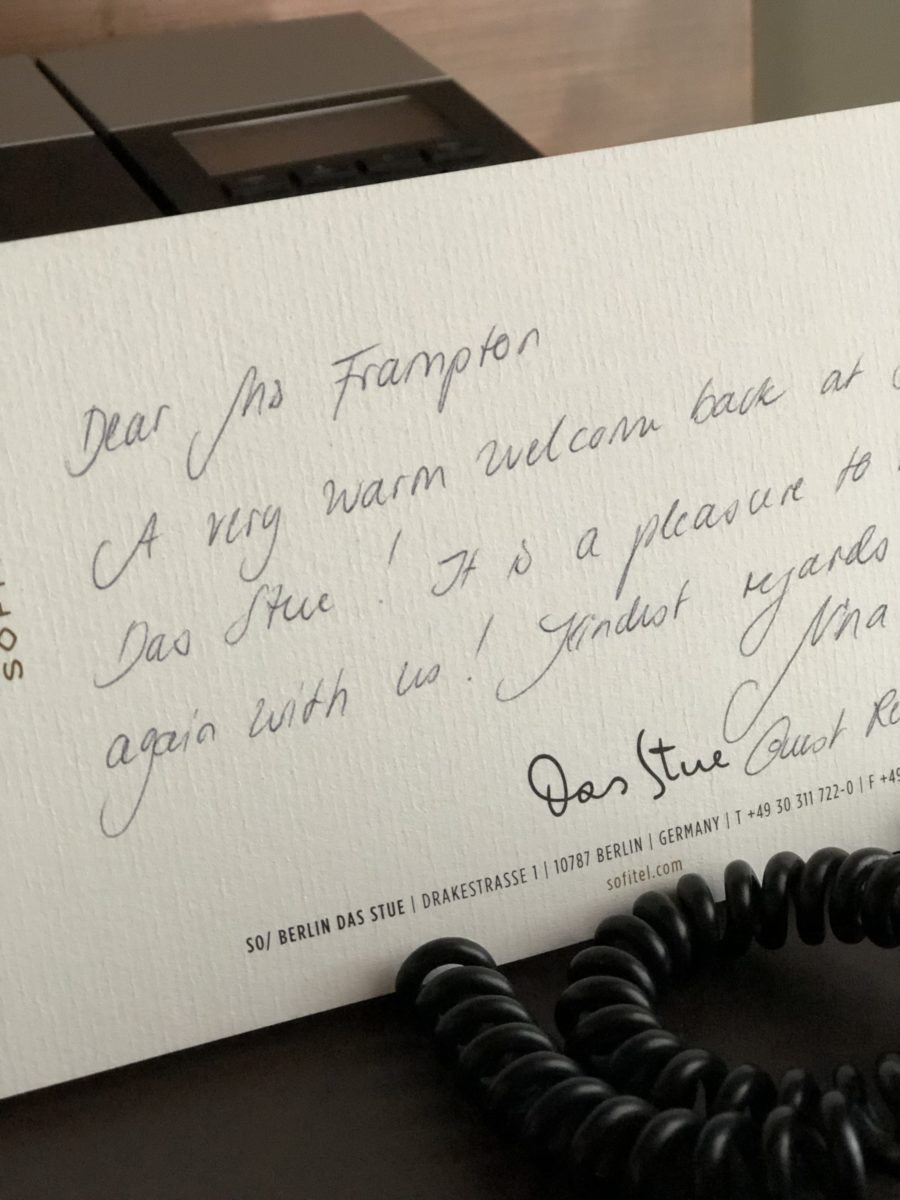 Dear Ms Frampton
A very warm welcome back at
Das Stue! It is a pleasure to
again with us! Kindest regards
Nina
Das Stue Guest Re
SO/ BERLIN DAS STUE | DRAKESTRASSE 1 | 10787 BERLIN | GERMANY | T +49 30 311 722-0 | F +49
sofitel.com